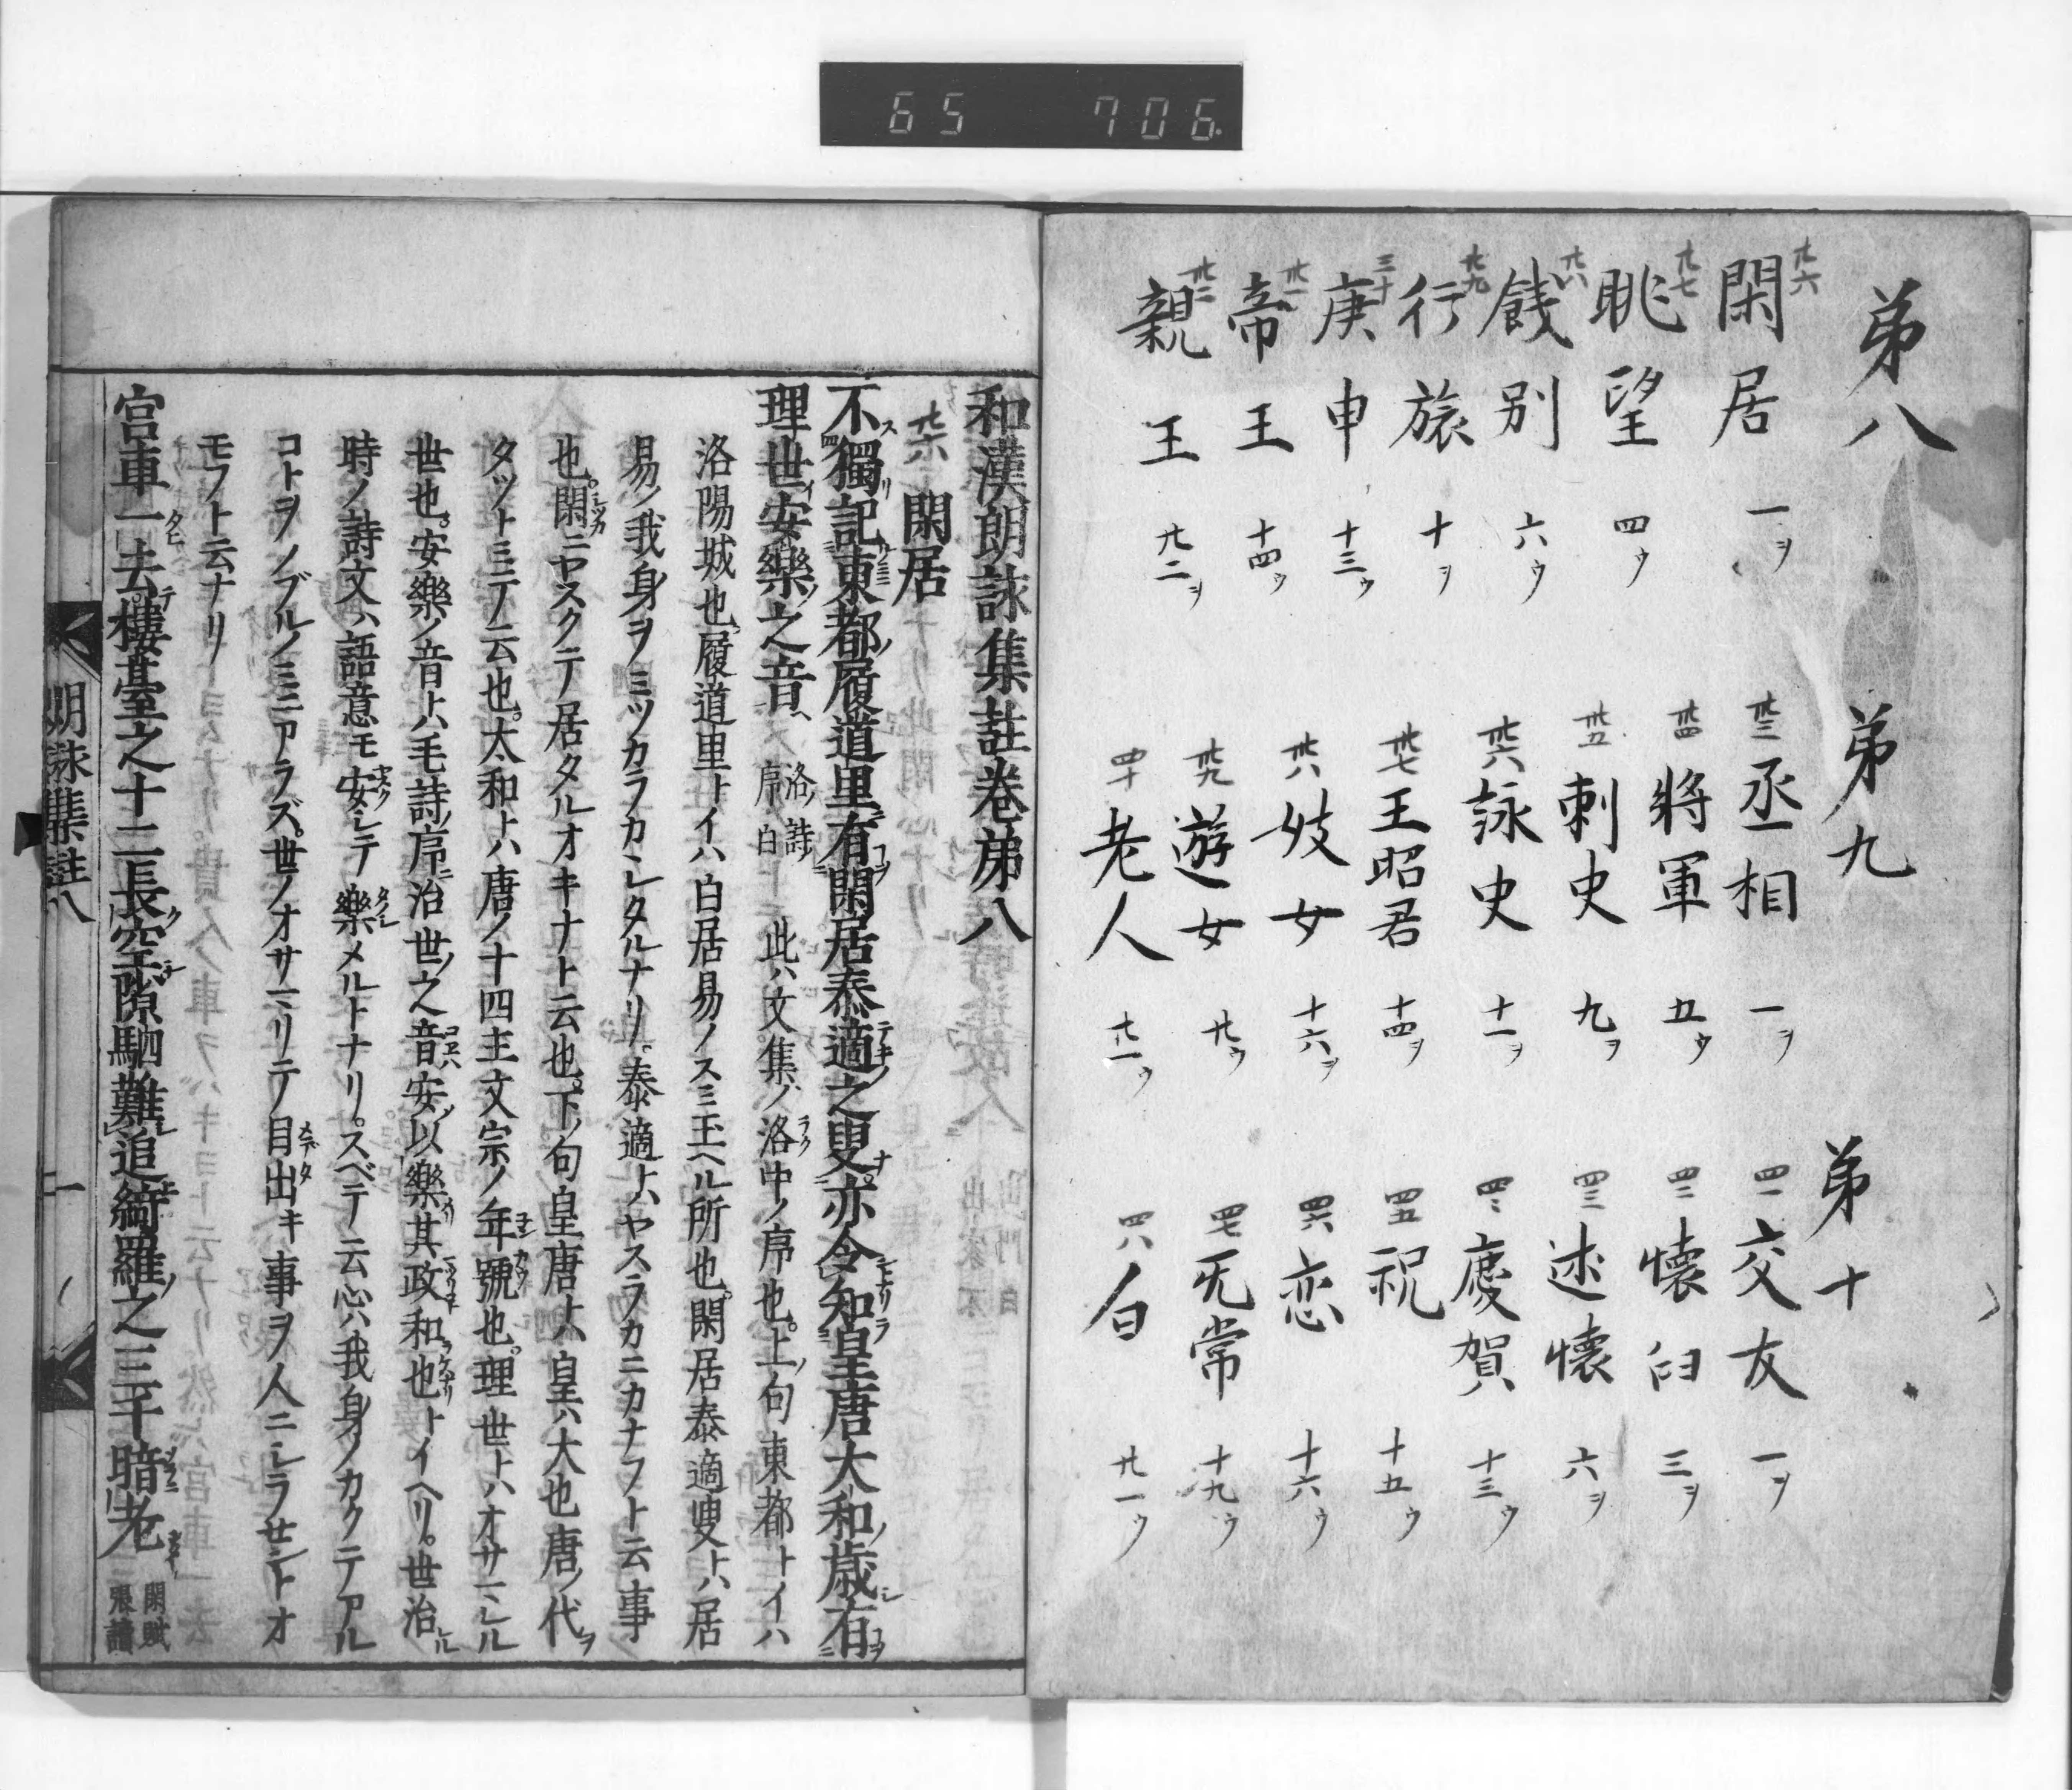 65 706
弟八
閑居 一ヲ
眺望 四ウ
餞別 六ウ
行旅 十ヲ
庚申 十三ウ
帝王 十四ウ
親王 廿二ヲ
弟九
丞相 一ヲ
將軍 五ウ
刺史 九ヲ
詠史 十一ヲ
王昭君 十四ヲ
妓女 十六ヲ
遊女 廿ウ
老人 廿一ウ
弟十
交友 一ヲ
懐旧 三ヲ
述懐 六ヲ
慶賀 十三ウ
祝 十五ウ
恋 十六ウ
无常 十九ウ
白 廿一ウ
和漢朗詠集註卷第八
閑居
不獨記東都履道里有閑居泰適之叟亦令知皇唐大和歳有
理世安樂之音 洛詩序 白 此ハ文集ノ洛中ノ序也。上ノ句東都トイハ
洛陽城也履道里トイハ白居易ノスミ玉ヘル所也。閑居泰適叟トハ居
易ノ我身ヲミツカラカシタルナリ。泰適トハヤスラカニカナフト云事
也。閑ニヤスクテ居タルオキナト云也。下ノ句皇唐トハ皇ハ大也唐ノ代ヲ
タツトミテノ云也。太和トハ唐ノ十四主文宗ノ年號也。理世トハオサマレル
世也。安樂ノ音トハ毛詩序ニ治世之音安以樂其政和也トイヘリ。世治ル
時ノ詩文ハ語意モ安シテ樂メルトナリ。スベテノ云心ハ我身ノカクテアル
コトヲノブルノミニアラズ。世ノオサマリテ目出キ事ヲ人ニシラセントオ
モフト云ナリ
宮車一去樓臺之十二長空隙駟難追綺羅之三千暗老 閑賦 張讀
朗詠集註八 一